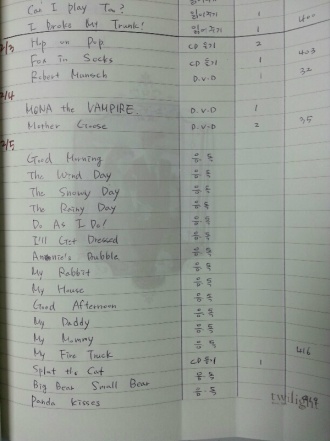 Can I play Too? 읽어주기
I Broke My Trunk! 읽어주기 1 400
2/3 Hop on Pop CD 듣기 2
Fox in Socks CD 듣기 1 403
Robert Munsch D.V.D 1 32
2/4
MONA the VAMPIRE D.V.D 1
Mother Goose D.V.D 2 35
2/5
Good Morning 음독
The Wind Day 음.독
The Snowy Day 음.독
The Rainy Day 음.독
Do As I Do! 음.독
I'll Get Dressed 음.독
Antonio's Bubble 음.독
My Rabbit 음.독
My House 음.독
Good Afternoon 음.독
My Daddy 음.독
My Mommy 음.독
My Fire Truck 음.독 416
Splat the Cat CD 듣기 1
Big Bear Small Bear 음.독
Panda Kisses 음.독
twilight